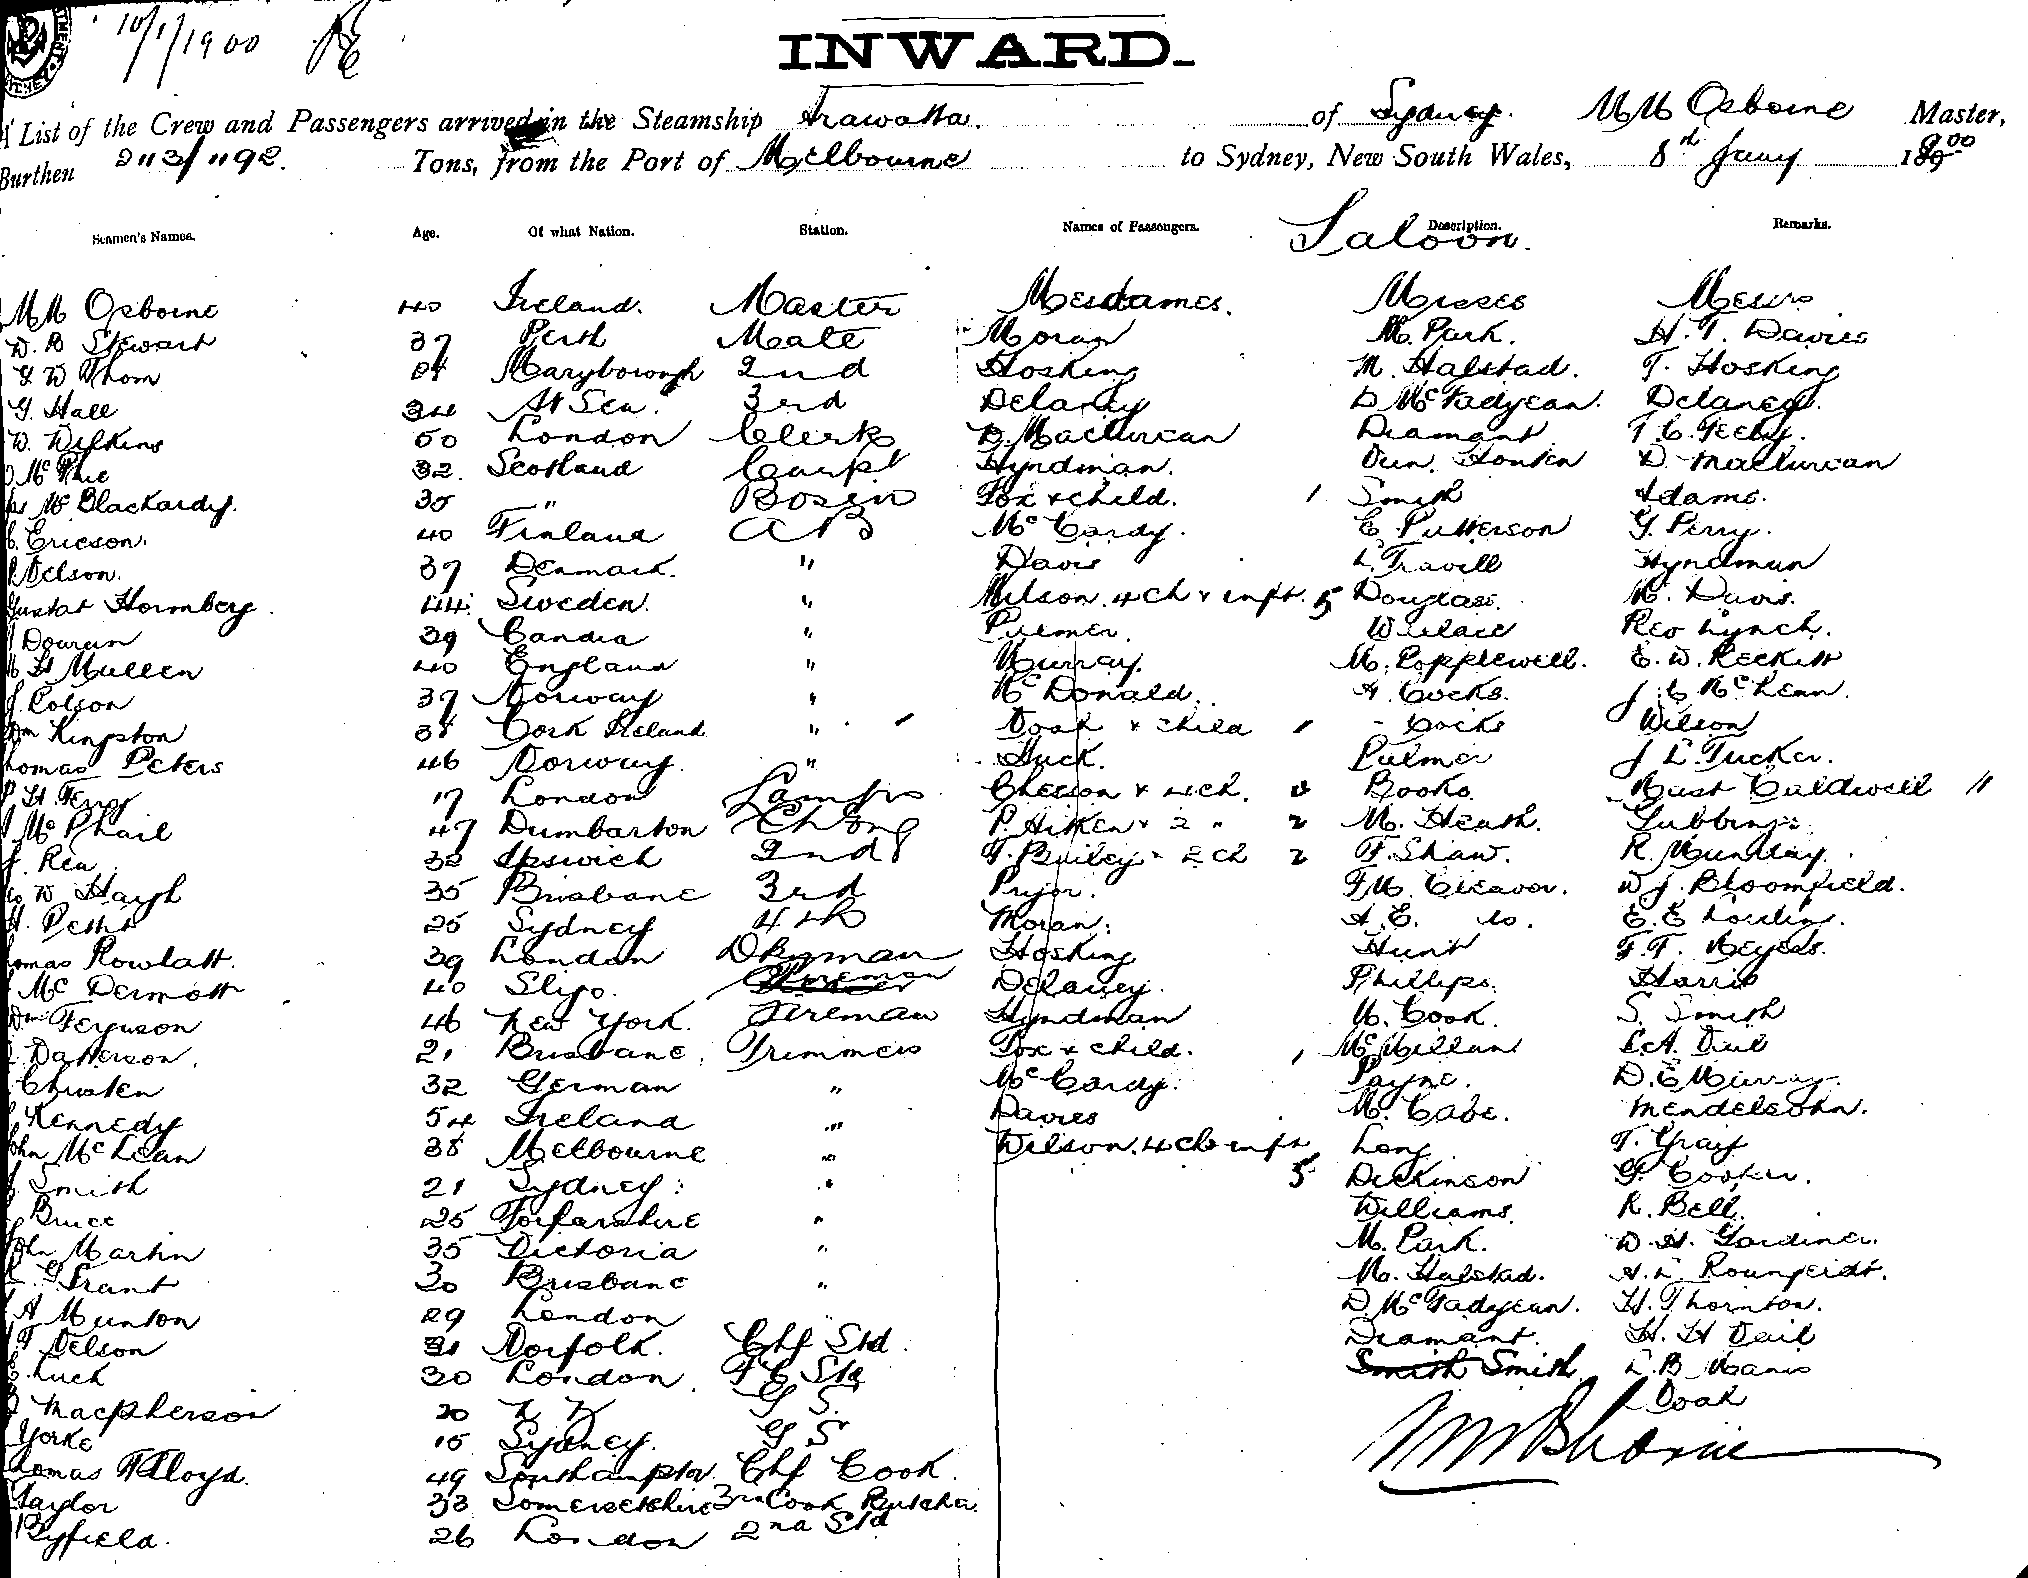 10/1/1900
INWARD.
A List of the Crew and Passengers arrived in the Steamship Arawatta. of Sydney. MM Osborne Master,
Burthen Tons, from the Port of Melbourne to Sydney, New South Wales, 8th Jany 1900
Seamen's Names. Age. Of what Nation. Station. Names of Passengers. Description. Remarks.
Saloon.
MM Osborne 40 Ireland. Master Mesdames. Misses Messrs
D. B Stewart 37 Perth Mate Moran M. Park. H. T. Davies
W Thom Maryborough 2nd Hosking M. Halstad. T. Hosking
G. Hall 34 At Sea. 3rd Delaney D McFadyean. Delaney.
W. Wilkins 50 London Clerk D. Maclurcan Diamant T. C.
32. Scotland Carpt Hyndman. D. Maclurcan
Mc Blackardy. 35 " Bosen Fox & child. 1 Smith Adams.
Ericson. 40 Finland AB McCardy. E. Patterson G. Perry.
Nelson. 37 Denmark. " Davis L. Travill Hyndman
Gustaf Hormberg 44. Sweden. " Wilson. 4 ch & inft. 5 Douglass. Davis.
Dourun 39 Candia " Palmer. Wallace Rev Lynch.
H Mullen 40 England " Murray. M. Popplewell. E. W. Reckitt
J. Polson 37 Norway " McDonald. A. Cocks. J. C McLean.
Wm Kingston 38 Cork Ireland " Doak & child 1 - Cocks Wilson
Thomas Peters 46 Norway. " Huck. Palmer J L. Tucker.
17 London Lamps Chesson & 4 ch. Books. Mast Caldwell "
McPhail 47 Dumbarton Ch Eng P. Aitken & 2 " 2 M. Heath. Gubbins.
J. Rea 32 Ipswich 2nd F. Bailey - 2 ch 2 F. Shaw. R. Munday.
W Haigh 35 Brisbane 3rd Pryor. F. M. Cleaver. W J. Bloomfield.
H. 25 Sydney 4th Moran. A. E. do. E. E
Thomas Rowlatt. 39 London Dkyman Hosking Hunt F. F. Meyers.
McDermott 40 Sligo. Fireman Delaney. Phillips. Harris
Wm Ferguson 46 New York. Fireman Hyndman M. Cook. S. Smith
Patterson. 21 Brisbane. Trimmers Fox & child. 1 McMillan L. A. Vail
Christen 32 German " McCardy. Payne. D. E Murray.
Kennedy 54 Ireland " Davies M. Cabe. Mendelsohn.
John McLean 38 Melbourne " Wilson. 4 ch inft Long T. Gray
Smith 21 Sydney. " 5 Dickinson G. Cooper.
Bruce 25 Forfarshire " Williams. R. Bell.
John Martin 35 Victoria " M. Park. W. H. Gardiner.
Grant 30 Brisbane " M. Halstad. A. L
A Munton 29 London " D. McFadyean. H. Thornton.
T Nelson 31 Norfolk. Chf Std Diamant. H. H Vail
Luck 30 London. F C Std Smith Smith. L. B
Macpherson 20 N Z G S. Doak
Yorke 15 Sydney. G S
MM Osborne
Thomas F Lloyd. 49 Southampton. Chf Cook.
Taylor 33 Somersetshire 3rd Cook Butcher
Byfield. 26 London 2nd Std